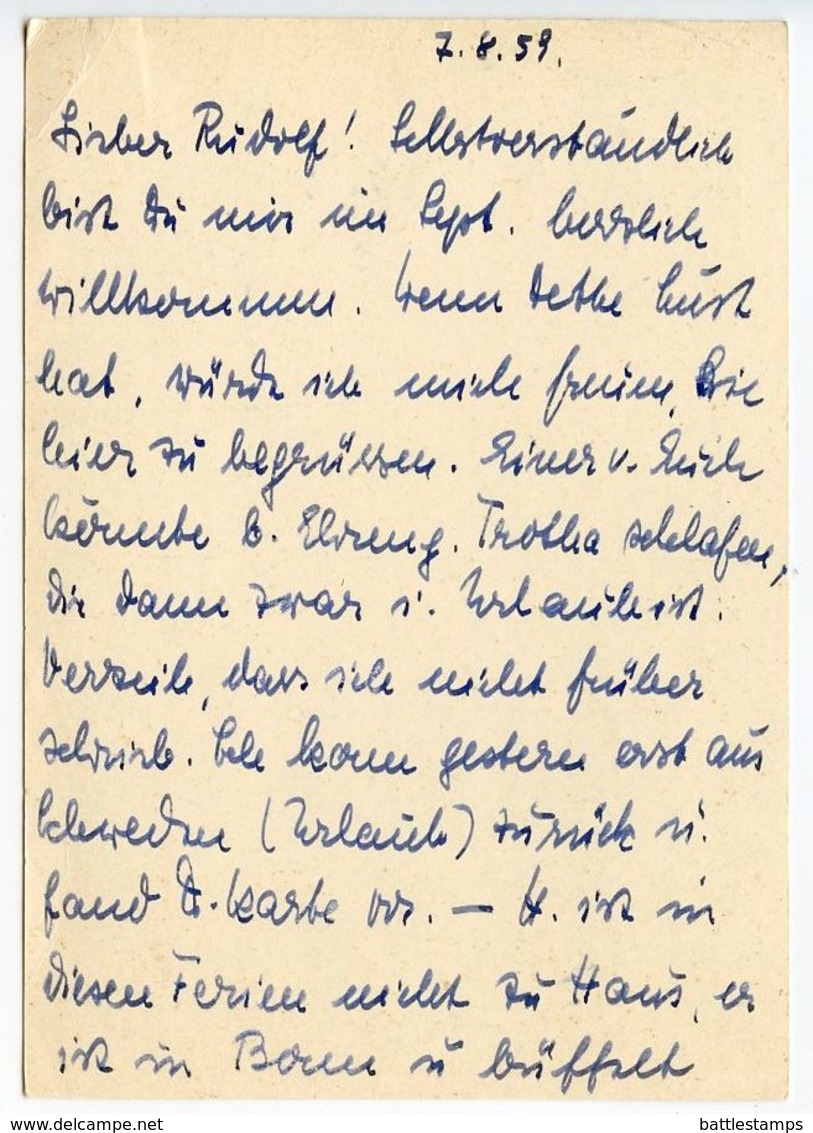 7.8.59.
Lieber Rudolf! Selbstverständlich
bist Du mir im Sept. herzlich
willkommen. Wenn Dethe Lust
hat, würde ich mich freuen, Sie
hier zu begrüssen. Einer v. Euch
könnte b. Trotha schlafen,
die dann zwar i. Urlaub ist.
Verzeih, dass ich nicht früher
schrieb. Ich kam gestern erst aus
Schweden (Urlaub) zurück u.
fand D. Karte vor. — H. ist in
diesen Ferien nicht zu Haus, er
ist in Bonn u büffelt
www.delcampe.net
battlestamps